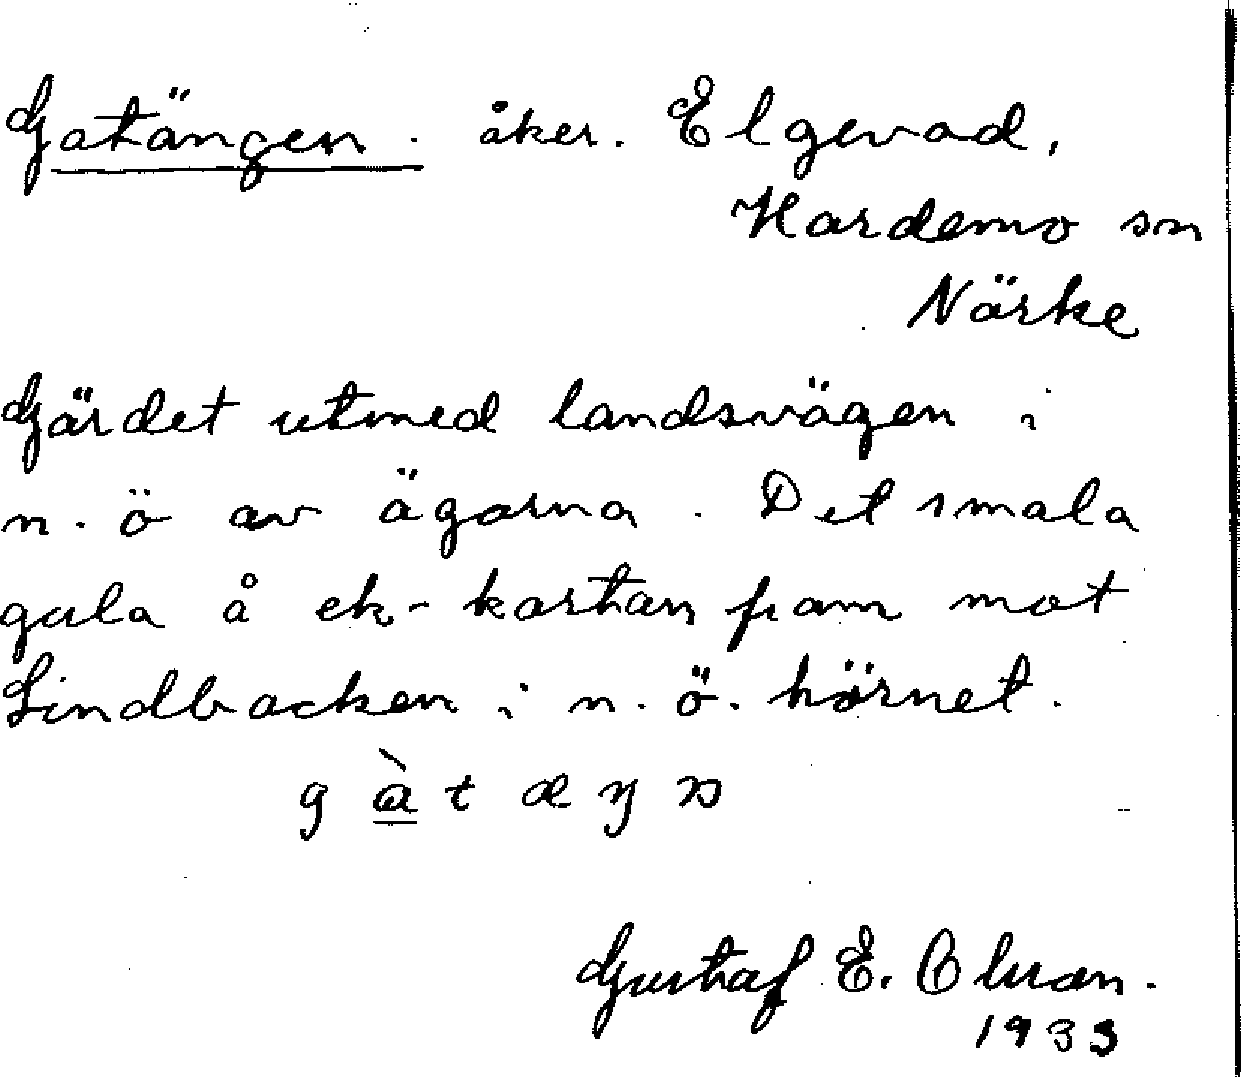 Gatängen. åker. Elgevad,
Hardemo sn
Närke
Gärdet utmed landsvägen i
n.ö av ägorna. Det smala
gula å ek-kartan fram mot
Lindbacken i n.ö. hörnet.
Gustaf E. Olsson.
1933